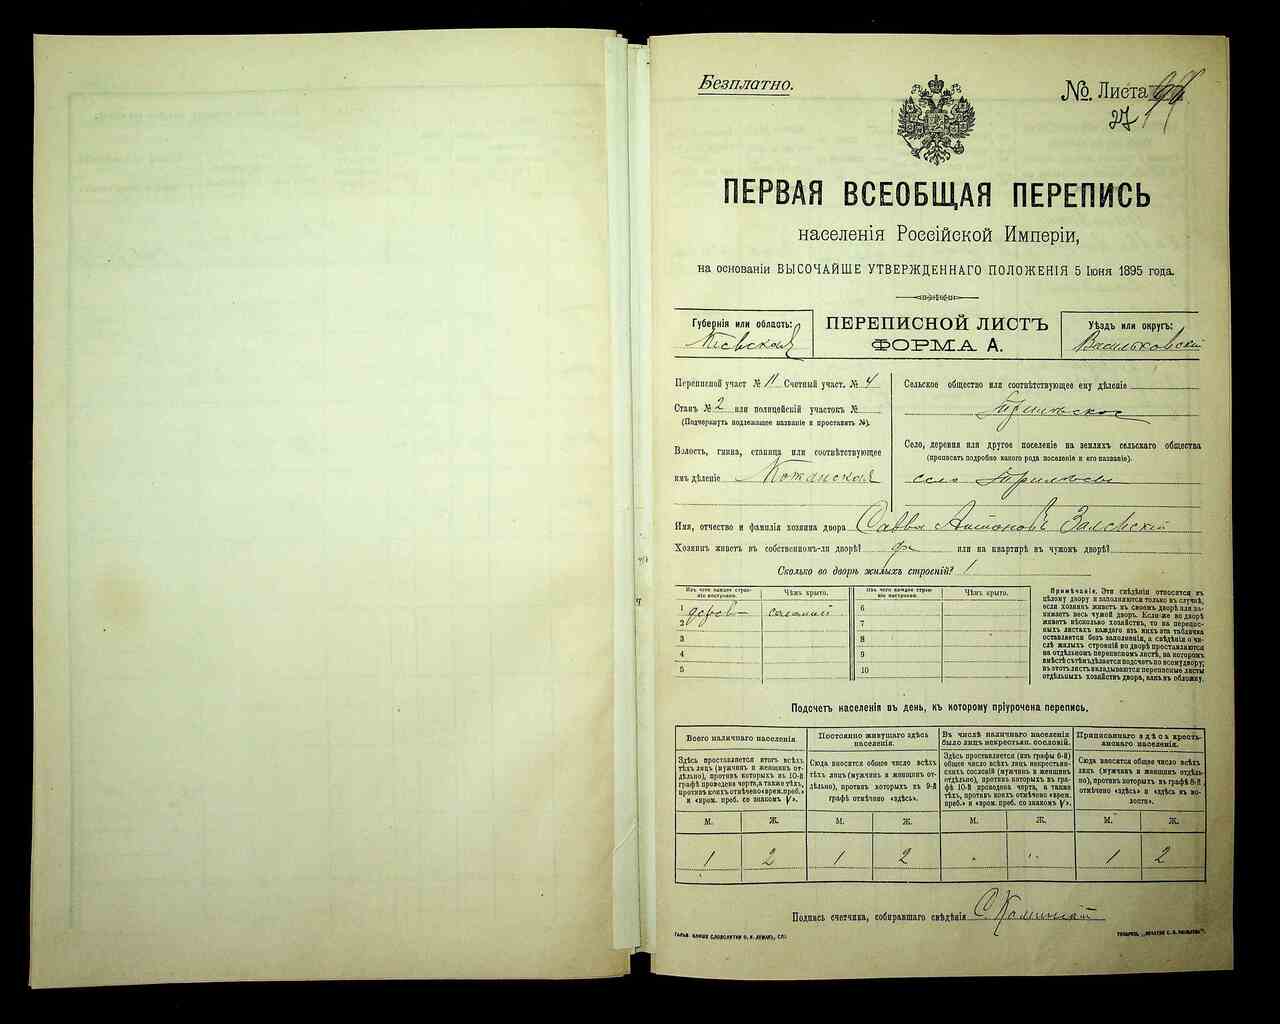 Безплатно.
№ Листа
27
ПЕРВАЯ ВСЕОБЩАЯ ПЕРЕПИСЬ
населенія Россійской Имперіи,
на основаніи ВЫСОЧАЙШЕ УТВЕРЖДЕННАГО ПОЛОЖЕНІЯ 5 Іюня 1895 года.
Губернія или область:
Кіевская
ПЕРЕПИСНОЙ ЛИСТЪ
ФОРМА А.
Уѣздъ или округъ:
Васильковскій
Переписной участ № 11 Счетный участ. № 4
Станъ № 2 или полицейскій участокъ №
(Подчеркнуть надлежащее названіе и проставить №).
Волость, гмина, станица или соотвѣтствующее
имъ дѣленіе Кожанская
Сельское общество или соотвѣтствующее ему дѣленіе
Село, деревня или другое поселеніе на земляхъ сельскаго общества
(прописать подробно какого рода поселеніе и его названіе).
село
Имя, отчество и фамилія хозяина двора Савва Антоновъ Залѣскій
Хозяинъ живетъ въ собственномъ-ли дворѣ? или на квартирѣ въ чужомъ дворѣ?
Сколько во дворѣ жилыхъ строеній? 1
Изъ чего каждое строеніе построено. Чѣмъ крыто. Изъ чего каждое строеніе построено. Чѣмъ крыто.
1 дерев соломой 6
2 7
3 8
4 9
5 10
Примѣчаніе. Эти свѣдѣнія относятся къ
цѣлому двору и заполняются только въ случаѣ,
если хозяинъ живетъ въ своемъ дворѣ или занимаетъ
весь чужой дворъ. Если-же во дворѣ
живетъ нѣсколько хозяйствъ, то на переписныхъ
листахъ каждаго изъ нихъ эта табличка
оставляется безъ заполненія, а свѣдѣнія о числѣ
жилыхъ строеній во дворѣ проставляются
на отдѣльномъ переписномъ листѣ, на которомъ
вмѣстѣ съ тѣмъ дѣлается подсчетъ по всему двору;
въ этотъ листъ вкладываются переписные листы
отдѣльныхъ хозяйствъ двора, какъ въ обложку.
Подсчетъ населенія въ день, къ которому пріурочена перепись.
Всего наличнаго населенія
Здѣсь проставляется итогъ всѣхъ
тѣхъ лицъ (мужчинъ и женщинъ отдѣльно),
противъ которыхъ въ 10-й
графѣ проведена черта, а также тѣхъ,
противъ коихъ отмѣчено «врем. преб.»
и «врем. преб. со знакомъ V».
Постоянно живущаго здѣсь
населенія.
Сюда вносится общее число всѣхъ
тѣхъ лицъ (мужчинъ и женщинъ отдѣльно),
противъ которыхъ въ 9-й
графѣ отмѣчено «здѣсь».
Въ числѣ наличнаго населенія
было лицъ некрестьян. сословій.
Здѣсь проставляется (изъ графы 6-й)
общее число всѣхъ лицъ некрестьянскихъ
сословій (мужчинъ и женщинъ
отдѣльно), противъ которыхъ въ графѣ
10-й проведена черта, а также
тѣхъ, противъ коихъ отмѣчено «врем.
преб.» и «врем. преб. со знакомъ V».
Приписаннаго здѣсь крестьянскаго
населенія.
Сюда вносится общее число всѣхъ
лицъ (мужчинъ и женщинъ отдѣльно),
противъ которыхъ въ графѣ 8-й,
отмѣчено «здѣсь» и «здѣсь въ волости».
М. Ж. М. Ж. М. Ж. М. Ж.
1 2 1 2 1 2
Подпись счетчика, собиравшаго свѣдѣнія С. Каминскій